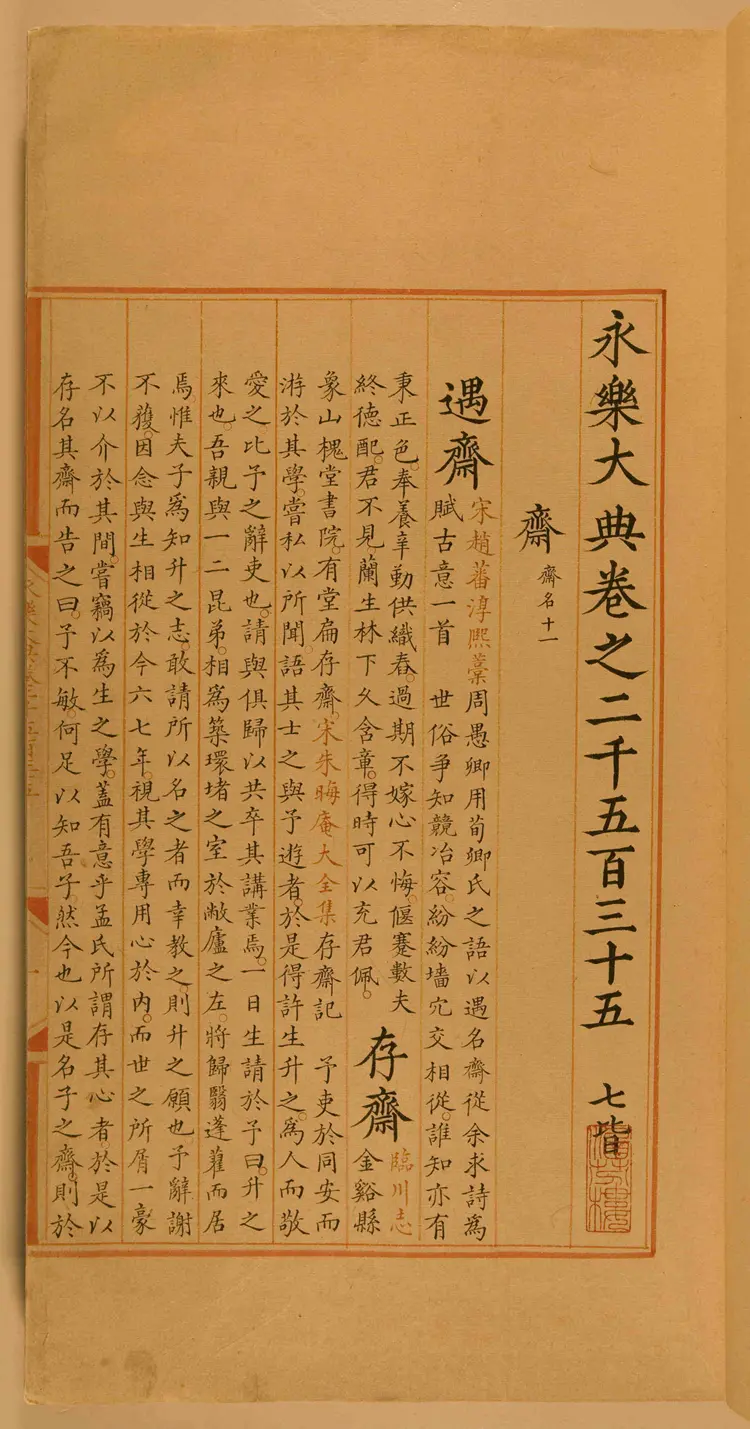 永樂大典卷之二千五百三十五 七皆
齋 齋名十一
遇齋
宋趙蕃淳熙藁周愚卿用荀卿氏之語以遇名齋從余求詩為
賦古意一首 世俗爭知競冶容。紛紛墻宂交相從。誰知亦有
秉正色。奉養辛勤供織舂。過期不嫁心不悔。偃蹇數夫
終德配。君不見蘭生林下久含章。得時可以充君佩。
存齋
臨川志
金谿縣
象山槐堂書院。有堂扁存齋。宋朱晦庵大全集存齋記 予吏於同安而
游於其學。嘗私以所聞。語其士之與予遊者。於是得許生升之。為人而敬
愛之比予之辭吏也。請與俱歸以共卒其講業焉。一日生請於予曰。升之
來也。吾親與一二昆弟。相為築環堵之室於敝廬之左。將歸翳蓬藋而居
焉惟夫子為知升之志。敢請所以名之者而幸教之。則升之願也。予辭謝
不獲。因念與生相從於今六七年。視其學專用心於內。而世之所屑一豪
不以介於其間。嘗竊以為生之學。蓋有意乎孟氏所謂存其心者。於是以
存名其齋而告之曰。予不敏。何足以知吾子。然今也以是名子之齋。則於